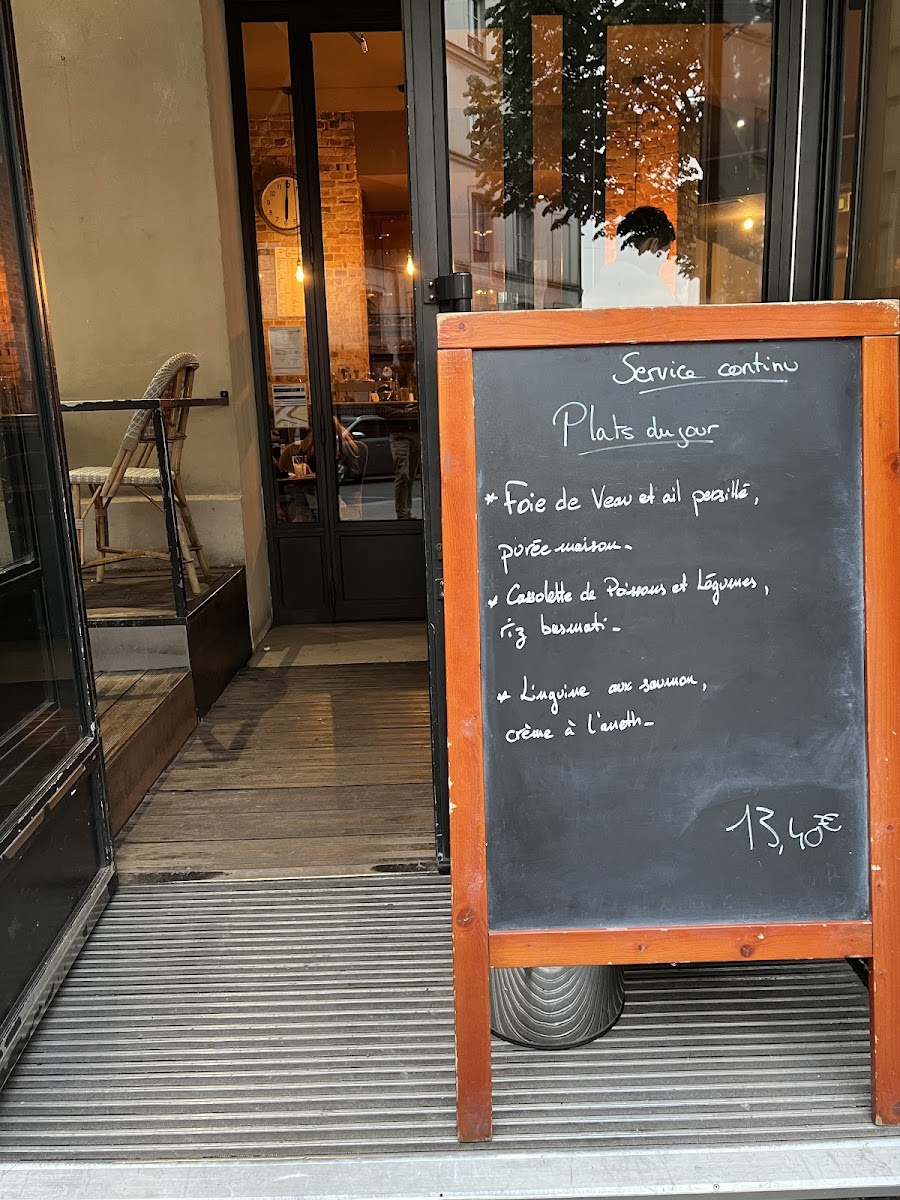 Service continu
Plats du jour
* Foie de Veau et ail persillé,
purée maison -
* Cassolette de Poissons et Légumes,
riz basmati -
* Linguine aux saumon,
crème à l'aneth -
13,40€